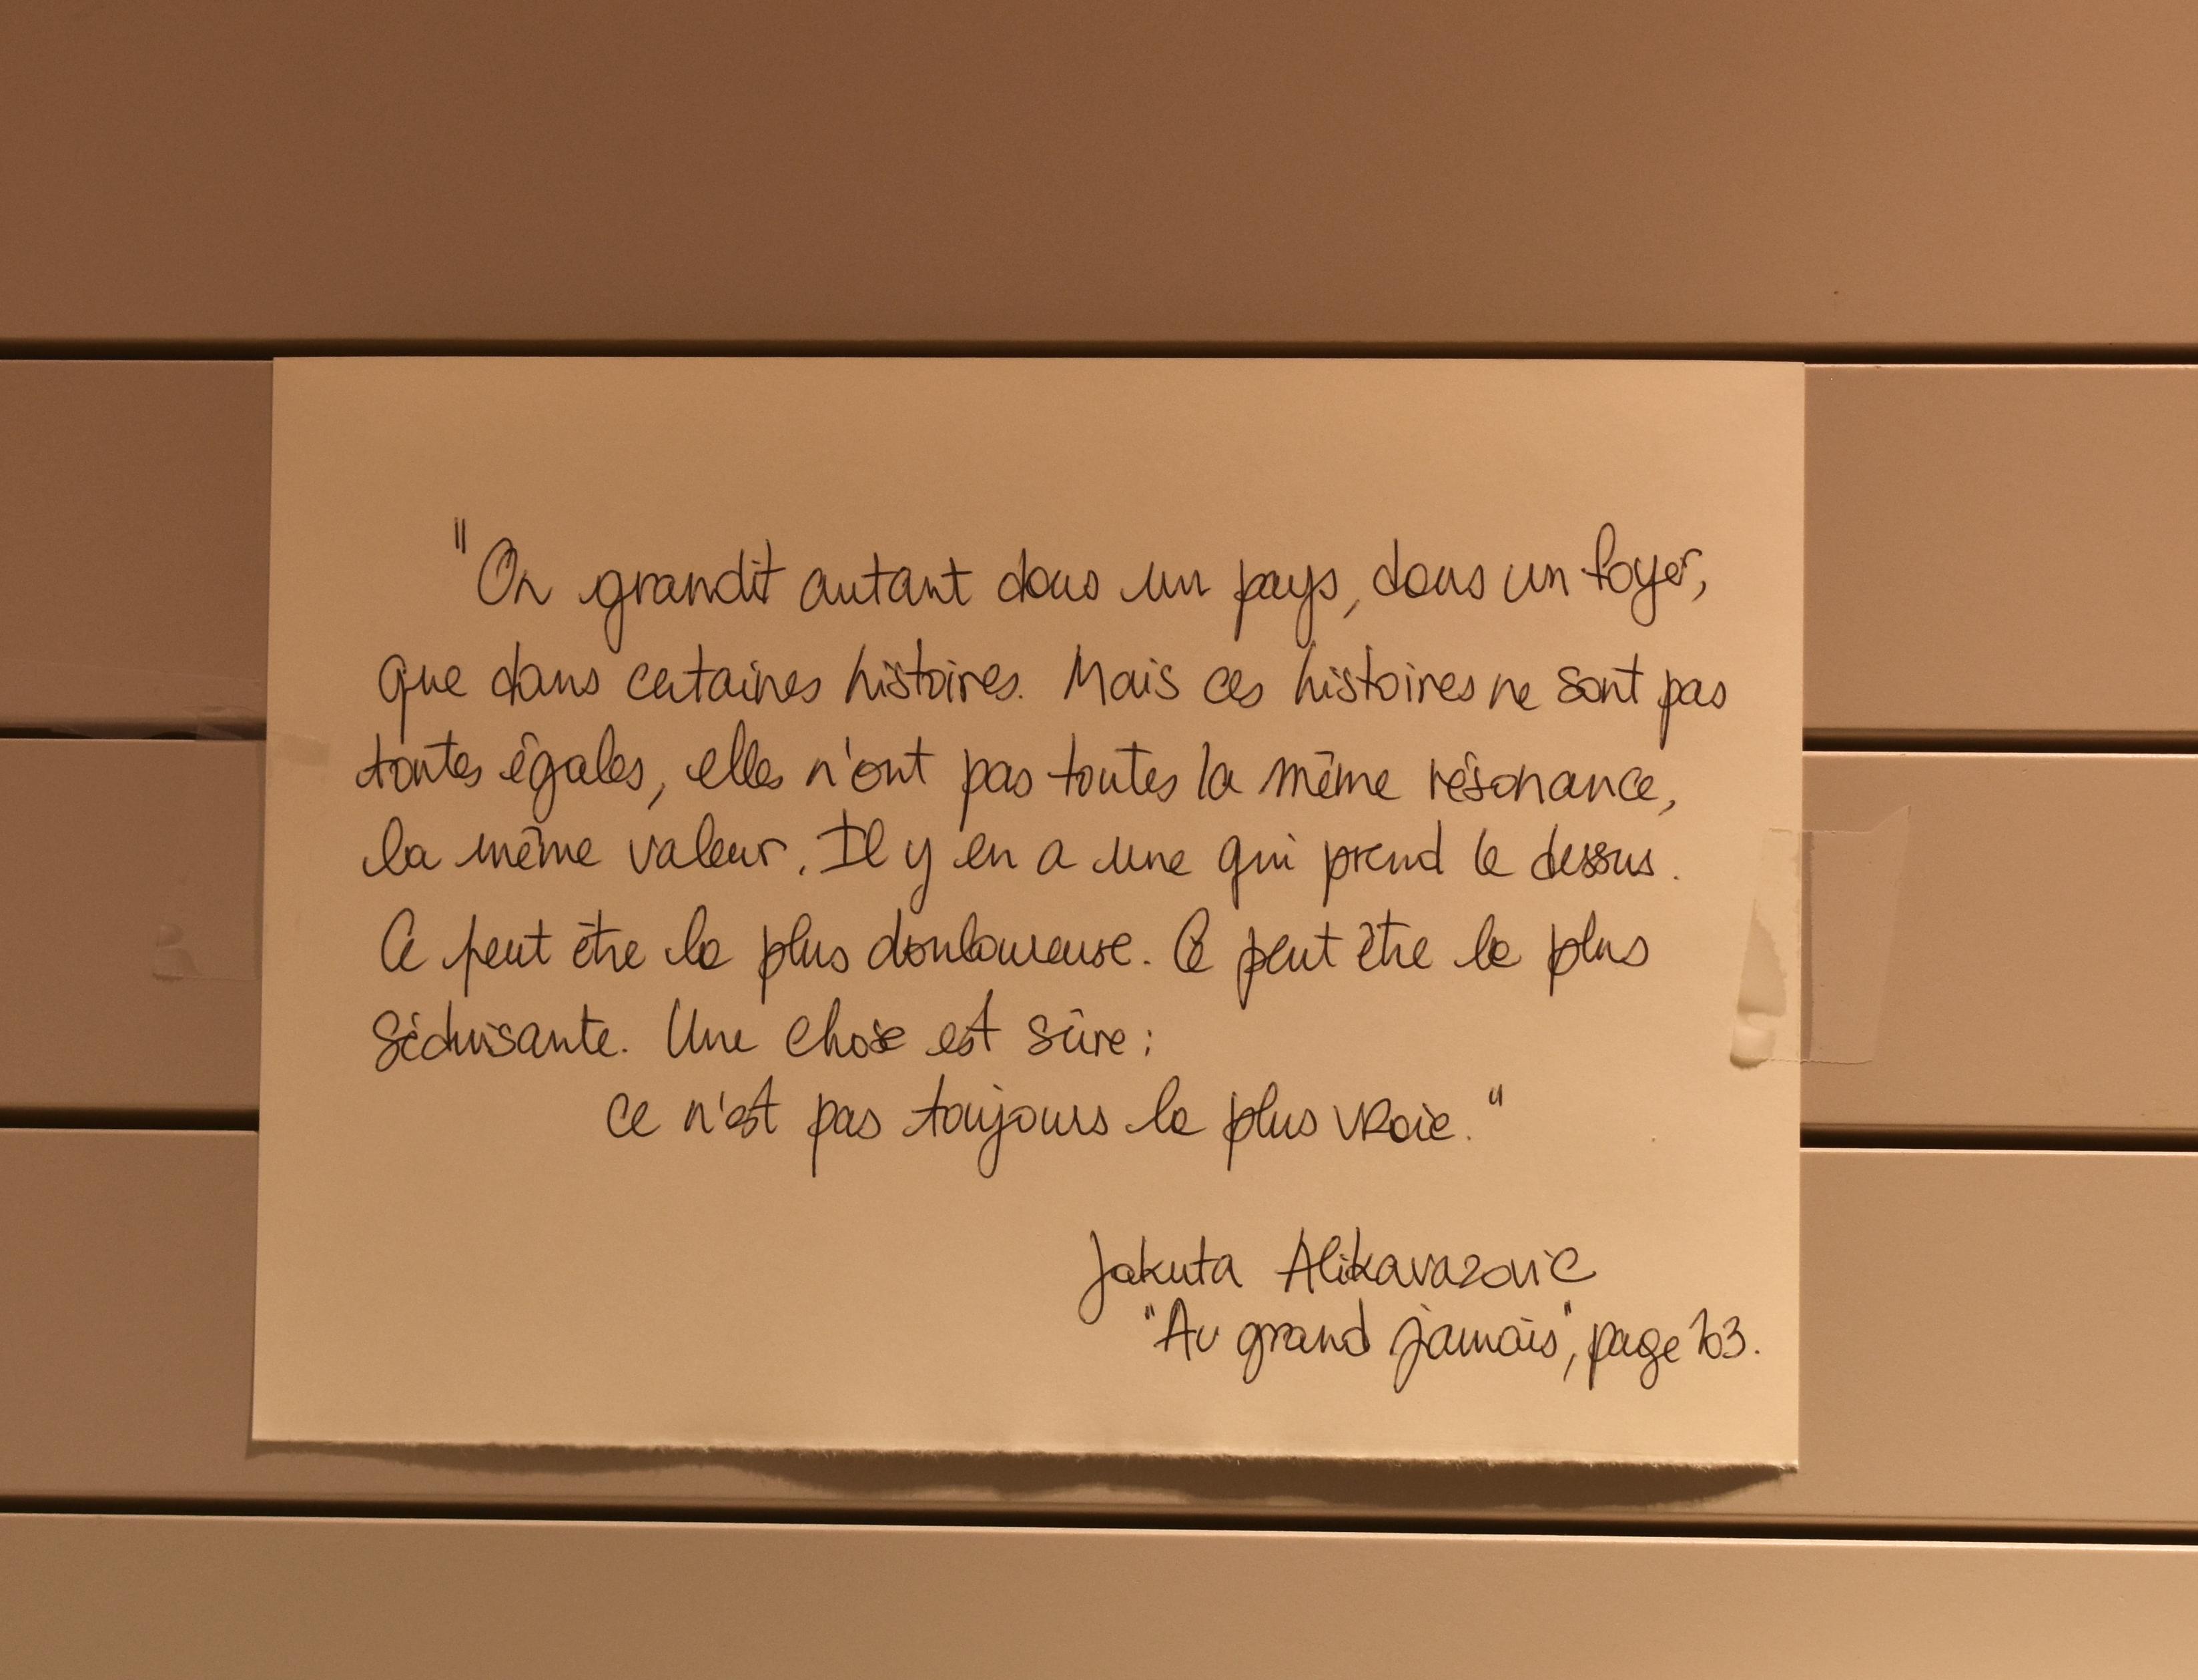 "On grandit autant dans un pays, dans un foyer,
que dans certaines histoires. Mais ces histoires ne sont pas
toutes égales, elles n'ont pas toutes la même résonance,
la même valeur. Il y en a une qui prend le dessus.
Ce peut être la plus douloureuse. Ce peut être la plus
séduisante. Une chose est sûre :
ce n'est pas toujours la plus vraie."
Jakuta Alikavazovic
"Au grand jamais", page